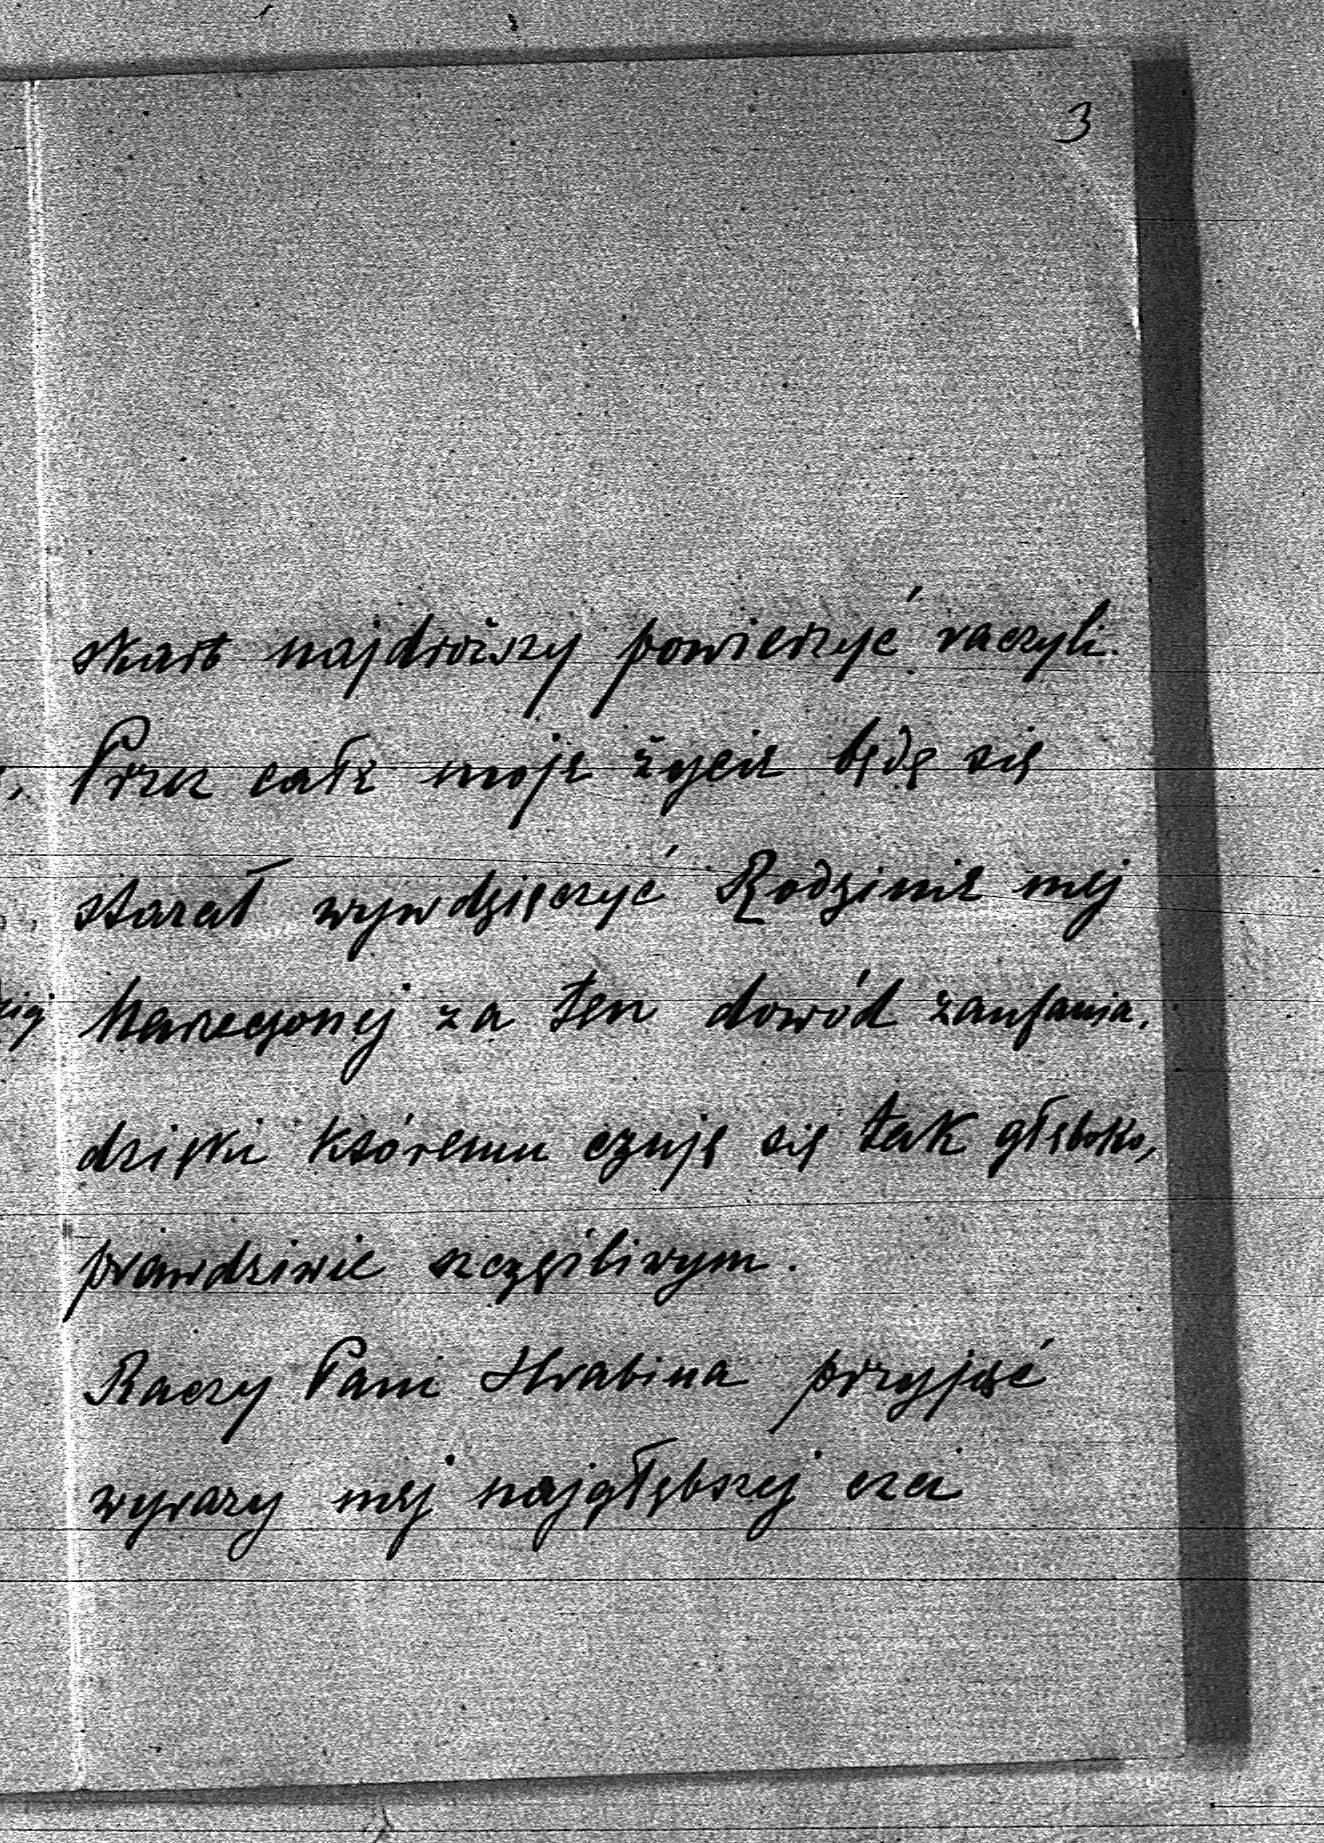 3
skarb najdroższy powierzyć raczyli.
Przez całe moje życie będę się
starał wywdzięczyć Rodzinie mej
Narzeczonej za ten dowód zaufania,
dzięki któremu czuję się tak głęboko,
prawdziwie szczęśliwym.
Raczy Pani Hrabina przyjąć
wyrazy mej najgłębszej czci